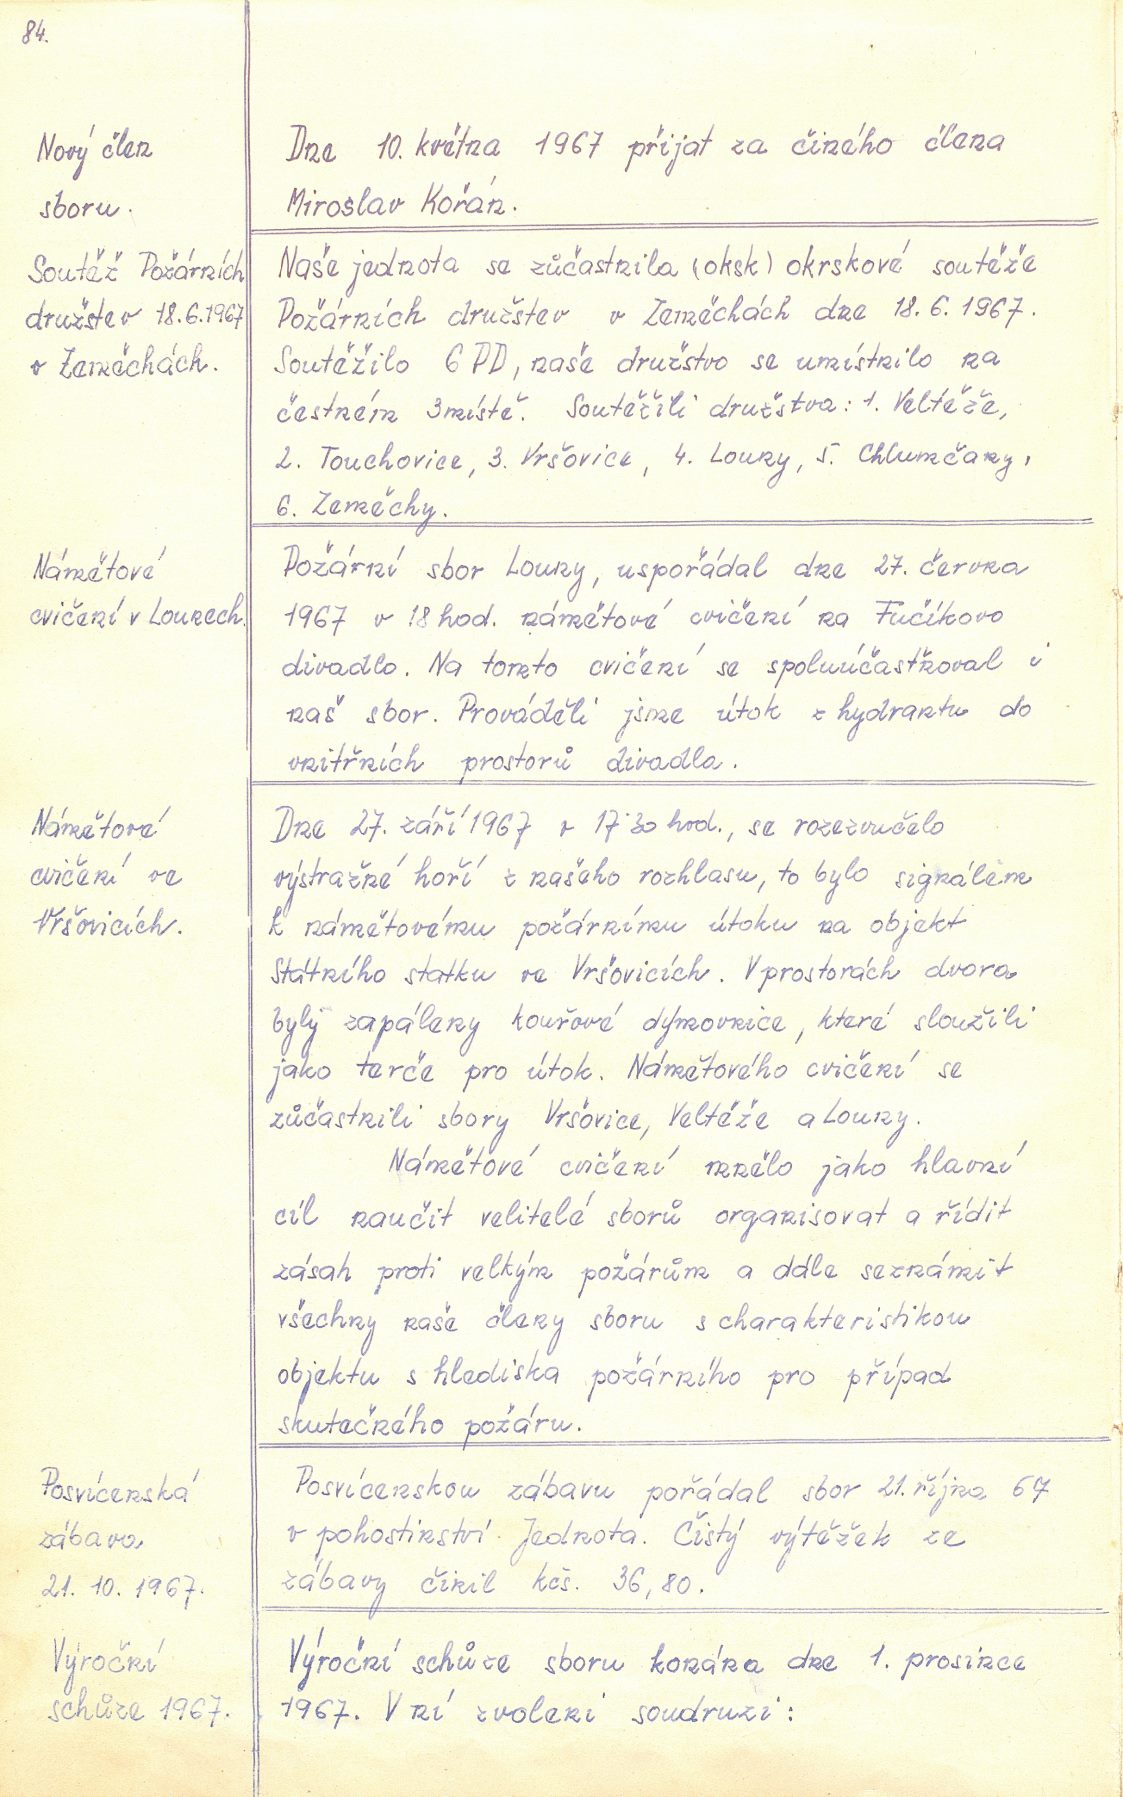 84.
Nový člen
sboru.
Dne 10. května 1967 přijat za činého člena
Miroslav Kořán.
Soutěž Požárních
družstev 18.6.1967
v Zeměchách.
Naše jednota se zůčastnila (oksk) okrskové soutěže
Požárních družstev v Zeměchách dne 18. 6. 1967.
Soutěžilo 6 PD, naše družstvo se umístnilo na
čestném 3místě. Soutěžili družstva: 1. Veltěže,
2. Touchovice, 3. Vršovice, 4. Louny, 5. Chlumčany,
6. Zeměchy.
Námětové
cvičení v Lounech.
Požární sbor Louny, uspořádal dne 27. června
1967 v 18 hod. námětové cvičení na Fučíkovo
divadlo. Na tomto cvičení se spoluúčastňoval i
naš sbor. Prováděli jsme útok z hydrantu do
vnitřních prostorů divadla.
Námětové
cvičení ve
Vršovicích.
Dne 27. září 1967 v 17.30 hod., se rozezvučelo
výstražné hoří z našeho rozhlasu, to bylo signálem
k námětovému požárnímu útoku na objekt
Státního statku ve Vršovicích. V prostorách dvora
byly zapáleny kouřové dýmovnice, které sloužili
jako terče pro útok. Námětového cvičení se
zůčastnili sbory Vršovice, Veltěže a Louny.
Námětové cvičení mnělo jako hlavní
cíl naučit velitelé sborů organisovat a řídit
zásah proti velkým požárům a dále seznámit
všechny naše členy sboru s charakteristikou
objektu s hlediska požárního pro případ
skutečného požáru.
Posvícenská
zábava
21. 10. 1967.
Posvícenskou zábavu pořádal sbor 21. října 67
v pohostinství Jednota. Čistý výtěžek ze
zábavy činil kčs. 36,80.
Výroční
schůze 1967.
Výroční schůze sboru konána dne 1. prosince
1967. V ní zvoleni soudruzi: